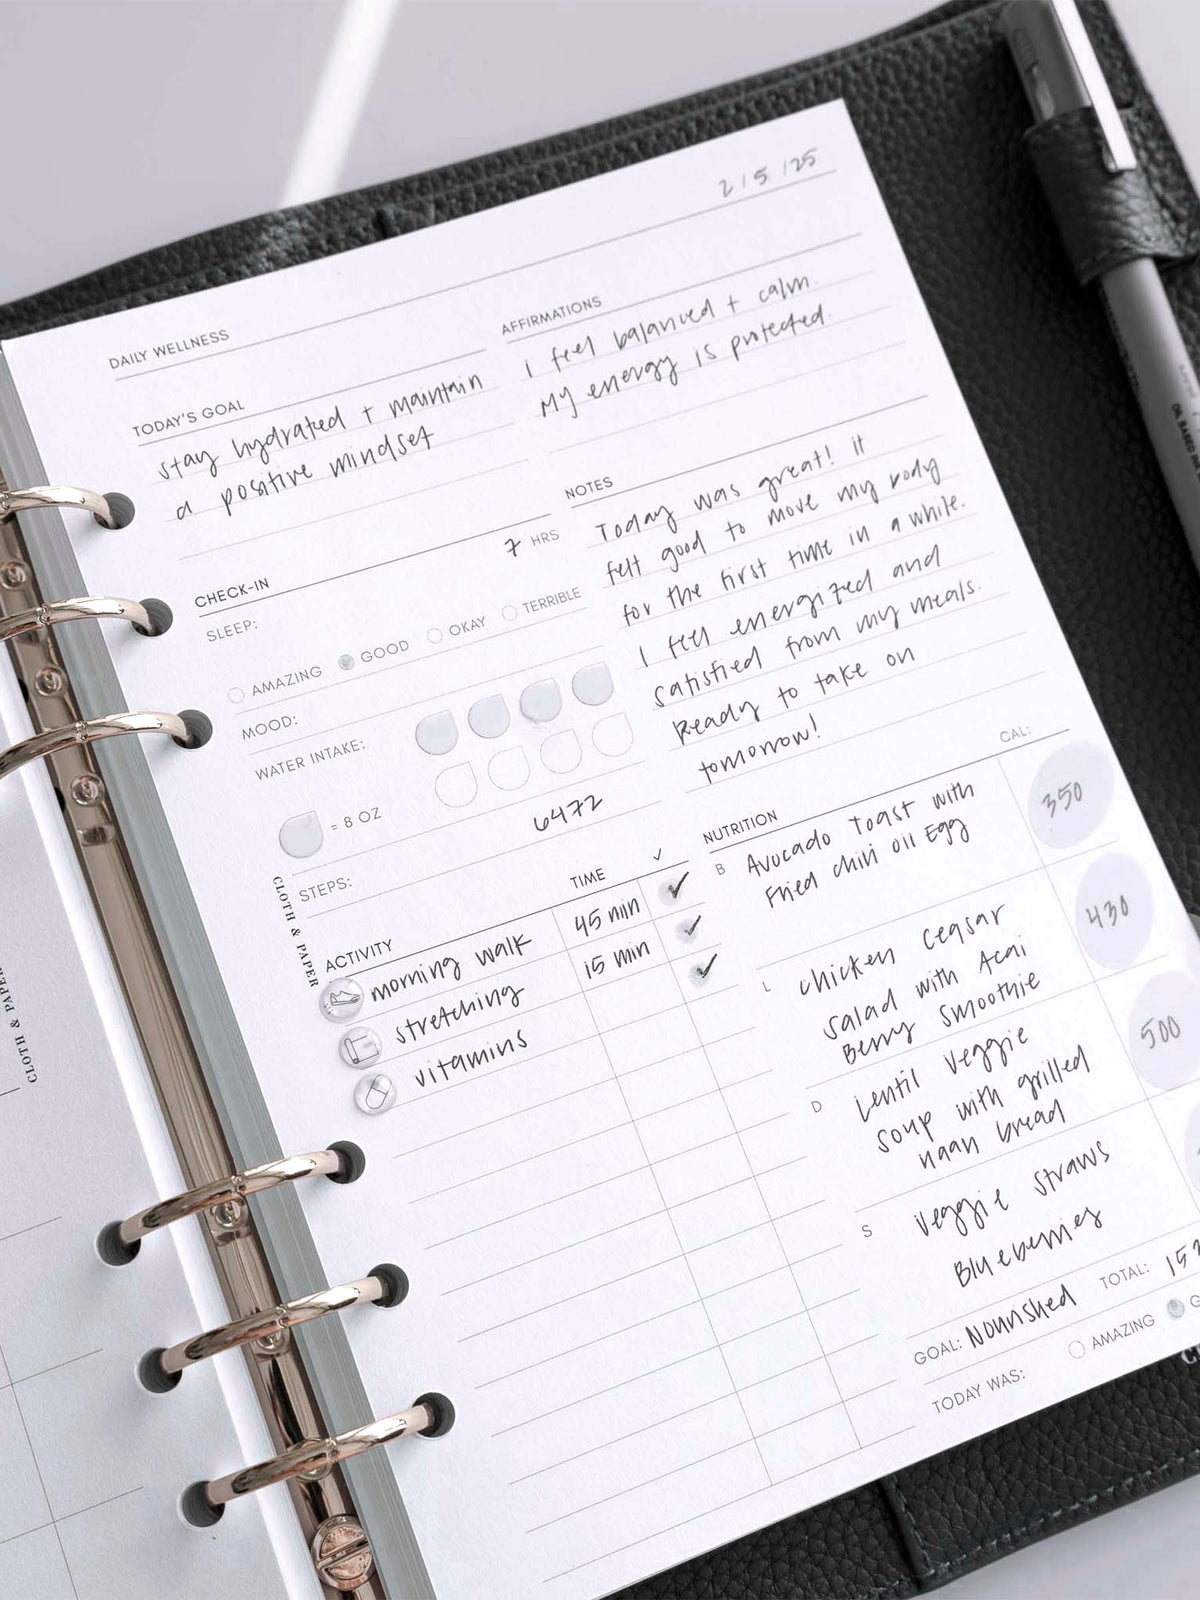 2/5/25
DAILY WELLNESS
TODAY'S GOAL
stay hydrated + maintain
a positive mindset
AFFIRMATIONS
i feel balanced + calm.
My energy is protected.
CHECK-IN
SLEEP: 7 HRS
AMAZING GOOD OKAY TERRIBLE
MOOD:
WATER INTAKE:
= 8 OZ
STEPS: 6472
NOTES
Today was great! it
felt good to move my body
for the first time in a while.
I feel energized and
satisfied from my meals.
Ready to take on
tomorrow!
ACTIVITY TIME ✓
morning walk 45 min ✓
stretching 15 min ✓
vitamins ✓
NUTRITION CAL:
B Avocado Toast with
Fried chili oil Egg
350
L chicken ceasar
salad with Acai
Berry Smoothie
430
D Lentil veggie
soup with grilled
naan bread
500
S veggie straws
Blueberries
GOAL: Nourished TOTAL:
TODAY WAS: AMAZING
CLOTH & PAPER
CLOTH & PAPER
OIL BASED